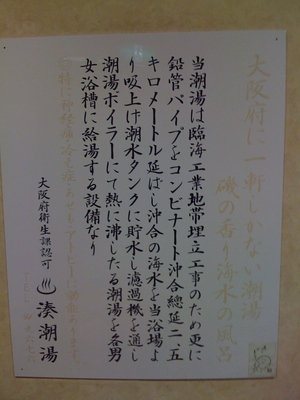 大阪府に一軒しかない潮湯
磯の香り海水の風呂
当潮湯は臨海工業地帯埋立工事のため更に
鉛管パイプをコンビナート沖合總延二、五
キロメートル延ばし沖合の海水を当浴場よ
り吸上げ潮水タンクに貯水し濾過機を通し
潮湯ボイラーにて熱に沸したる潮湯を各男
女浴槽に給湯する設備なり
大阪府衛生課認可
♨湊潮湯